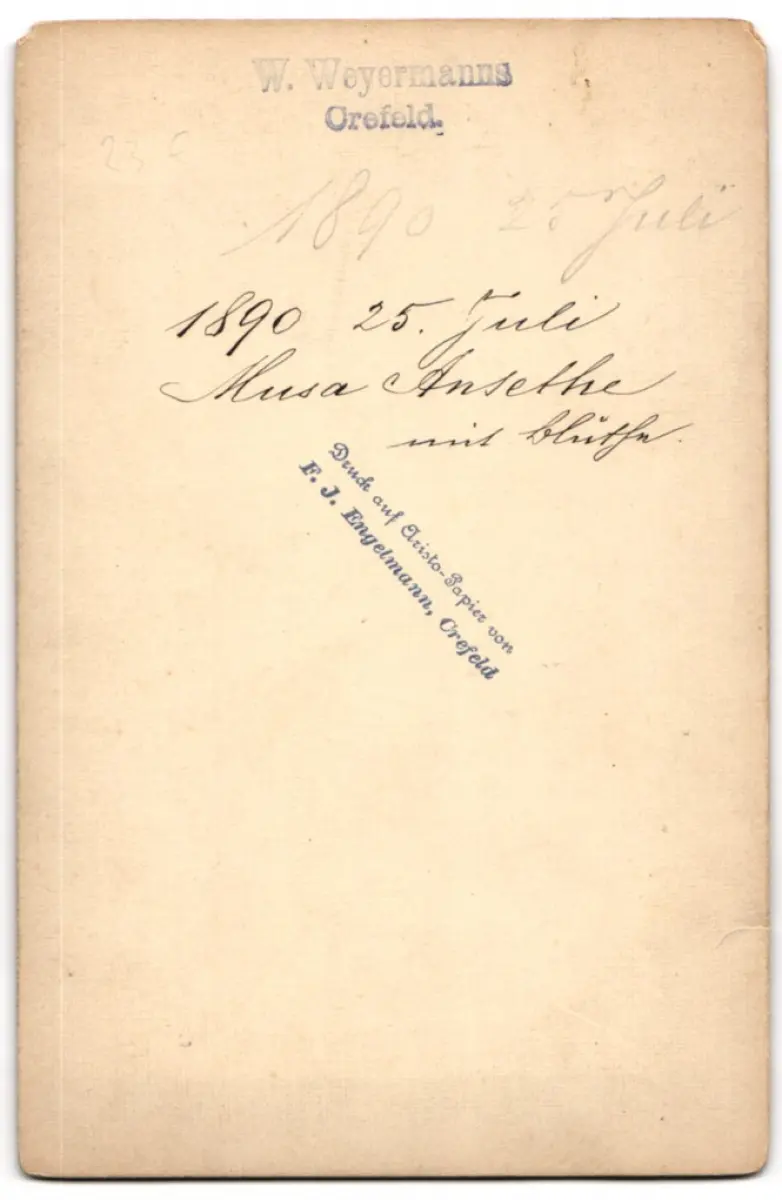 W. Weyermanns
Crefeld.
23 C
1890 25 Juli
1890 25. Juli
Musa Ansethe
mit Blüthe.
Druck auf Aristo-Papier von
F. J. Engelmann, Crefeld